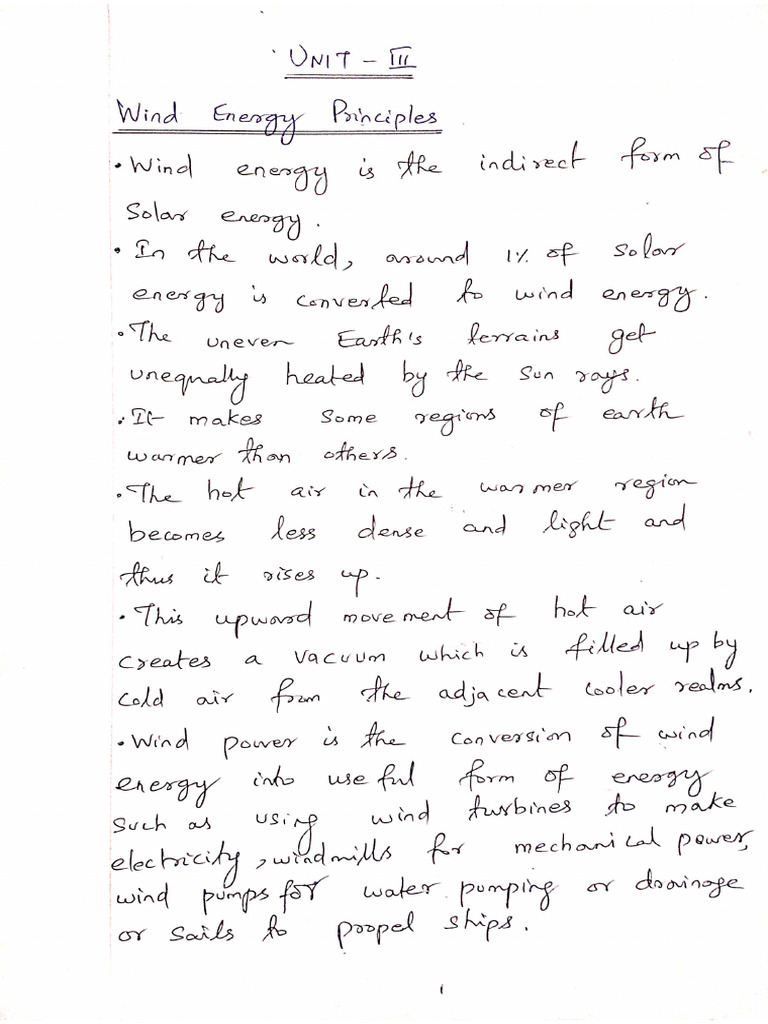 UNIT - III
Wind Energy Principles
• Wind energy is the indirect form of
Solar energy.
• In the world, around 1% of solar
energy is converted to wind energy.
• The uneven Earth's terrains get
unequally heated by the sun rays.
• It makes some regions of earth
warmer than others.
• The hot air in the warmer region
becomes less dense and light and
thus it rises up.
• This upward movement of hot air
creates a vacuum which is filled up by
cold air from the adjacent cooler realms.
• Wind power is the conversion of wind
energy into useful form of energy
such as using wind turbines to make
electricity, windmills for mechanical power,
wind pumps for water pumping or drainage
or sails to propel ships.
1